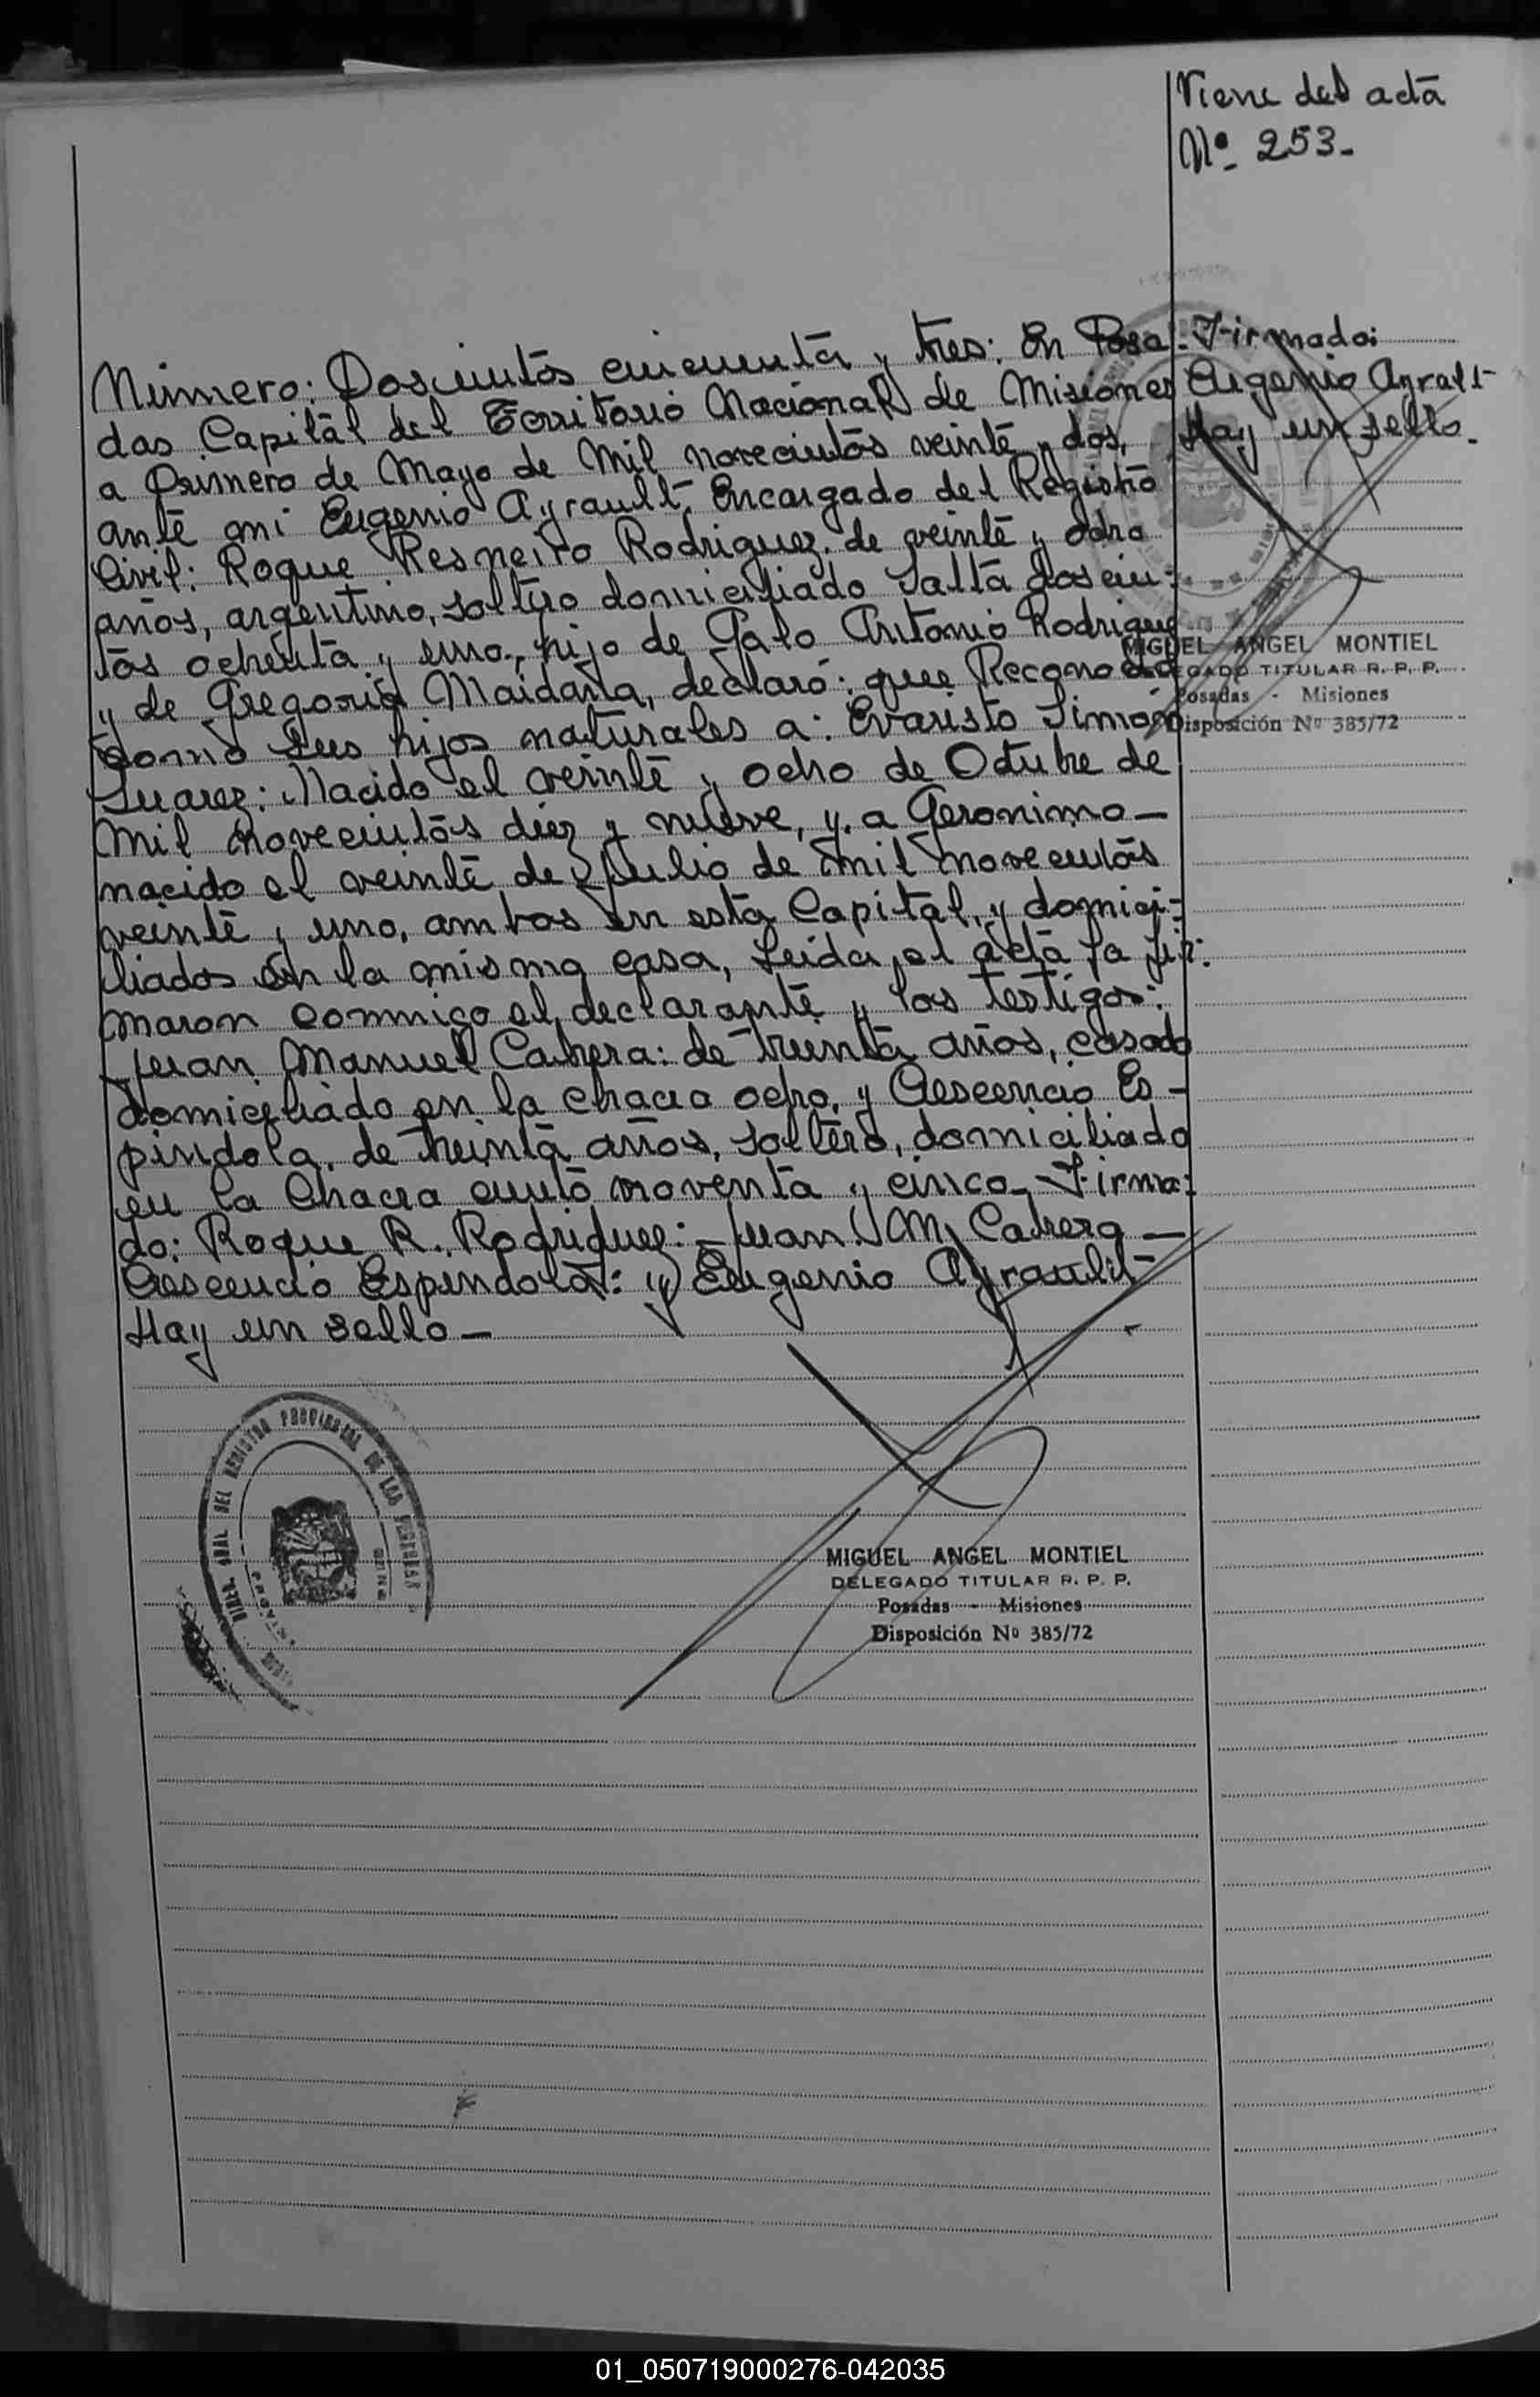 Viene del acta
Nº 253.-
Número: Doscientos cincuenta y tres: En Posa-
das Capital del Territorio Nacional de Misiones
a Primero de Mayo de Mil novecientos veinte y dos,
ante mi Eugenio Ayrault, Encargado del Registro
Civil: Roque Rodriguez, de veinte y ocho
años, argentino, soltero domiciliado Salta doscien-
tos ochenta y uno, hijo de Galo Antonio Rodriguez
y de Gregoria Maidana, declaró: que Reconocia
como sus hijos naturales a: Evaristo Simón
Suarez: Nacido el veinte y ocho de Octubre de
Mil novecientos diez y nueve, y a Geronimo -
nacido el veinte de Julio de mil novecientos
veinte y uno, ambos en esta Capital, y domici-
liados en la misma casa, Leida el acta la fir-
maron conmigo el declarante y los testigos:
Juan Manuel Cabrera: de treinta años, casado
domiciliado en la chacra ocho, y Crescencio Es-
pindola, de treinta años, soltero, domiciliado
en la Chacra ciento noventa y cinco - Firma-
do: Roque R. Rodriguez: - Juan M. Cabrera -
Crescencio Espindola: y Eugenio Ayrault -
Hay un sello -
Firmado:
Eugenio Ayralt
Hay un sello.
MIGUEL ANGEL MONTIEL
DELEGADO TITULAR R. P. P.
Posadas - Misiones
Disposición Nº 385/72
DIREC. GRAL DEL REGISTRO PROVINCIAL DE LAS PERSONAS
MIGUEL ANGEL MONTIEL
DELEGADO TITULAR R. P. P.
Posadas - Misiones
Disposición Nº 385/72
01_050719000276-042035